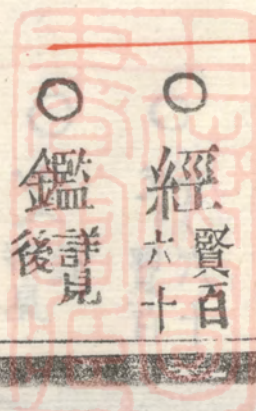 〇經賢百六十
〇鑑詳見後